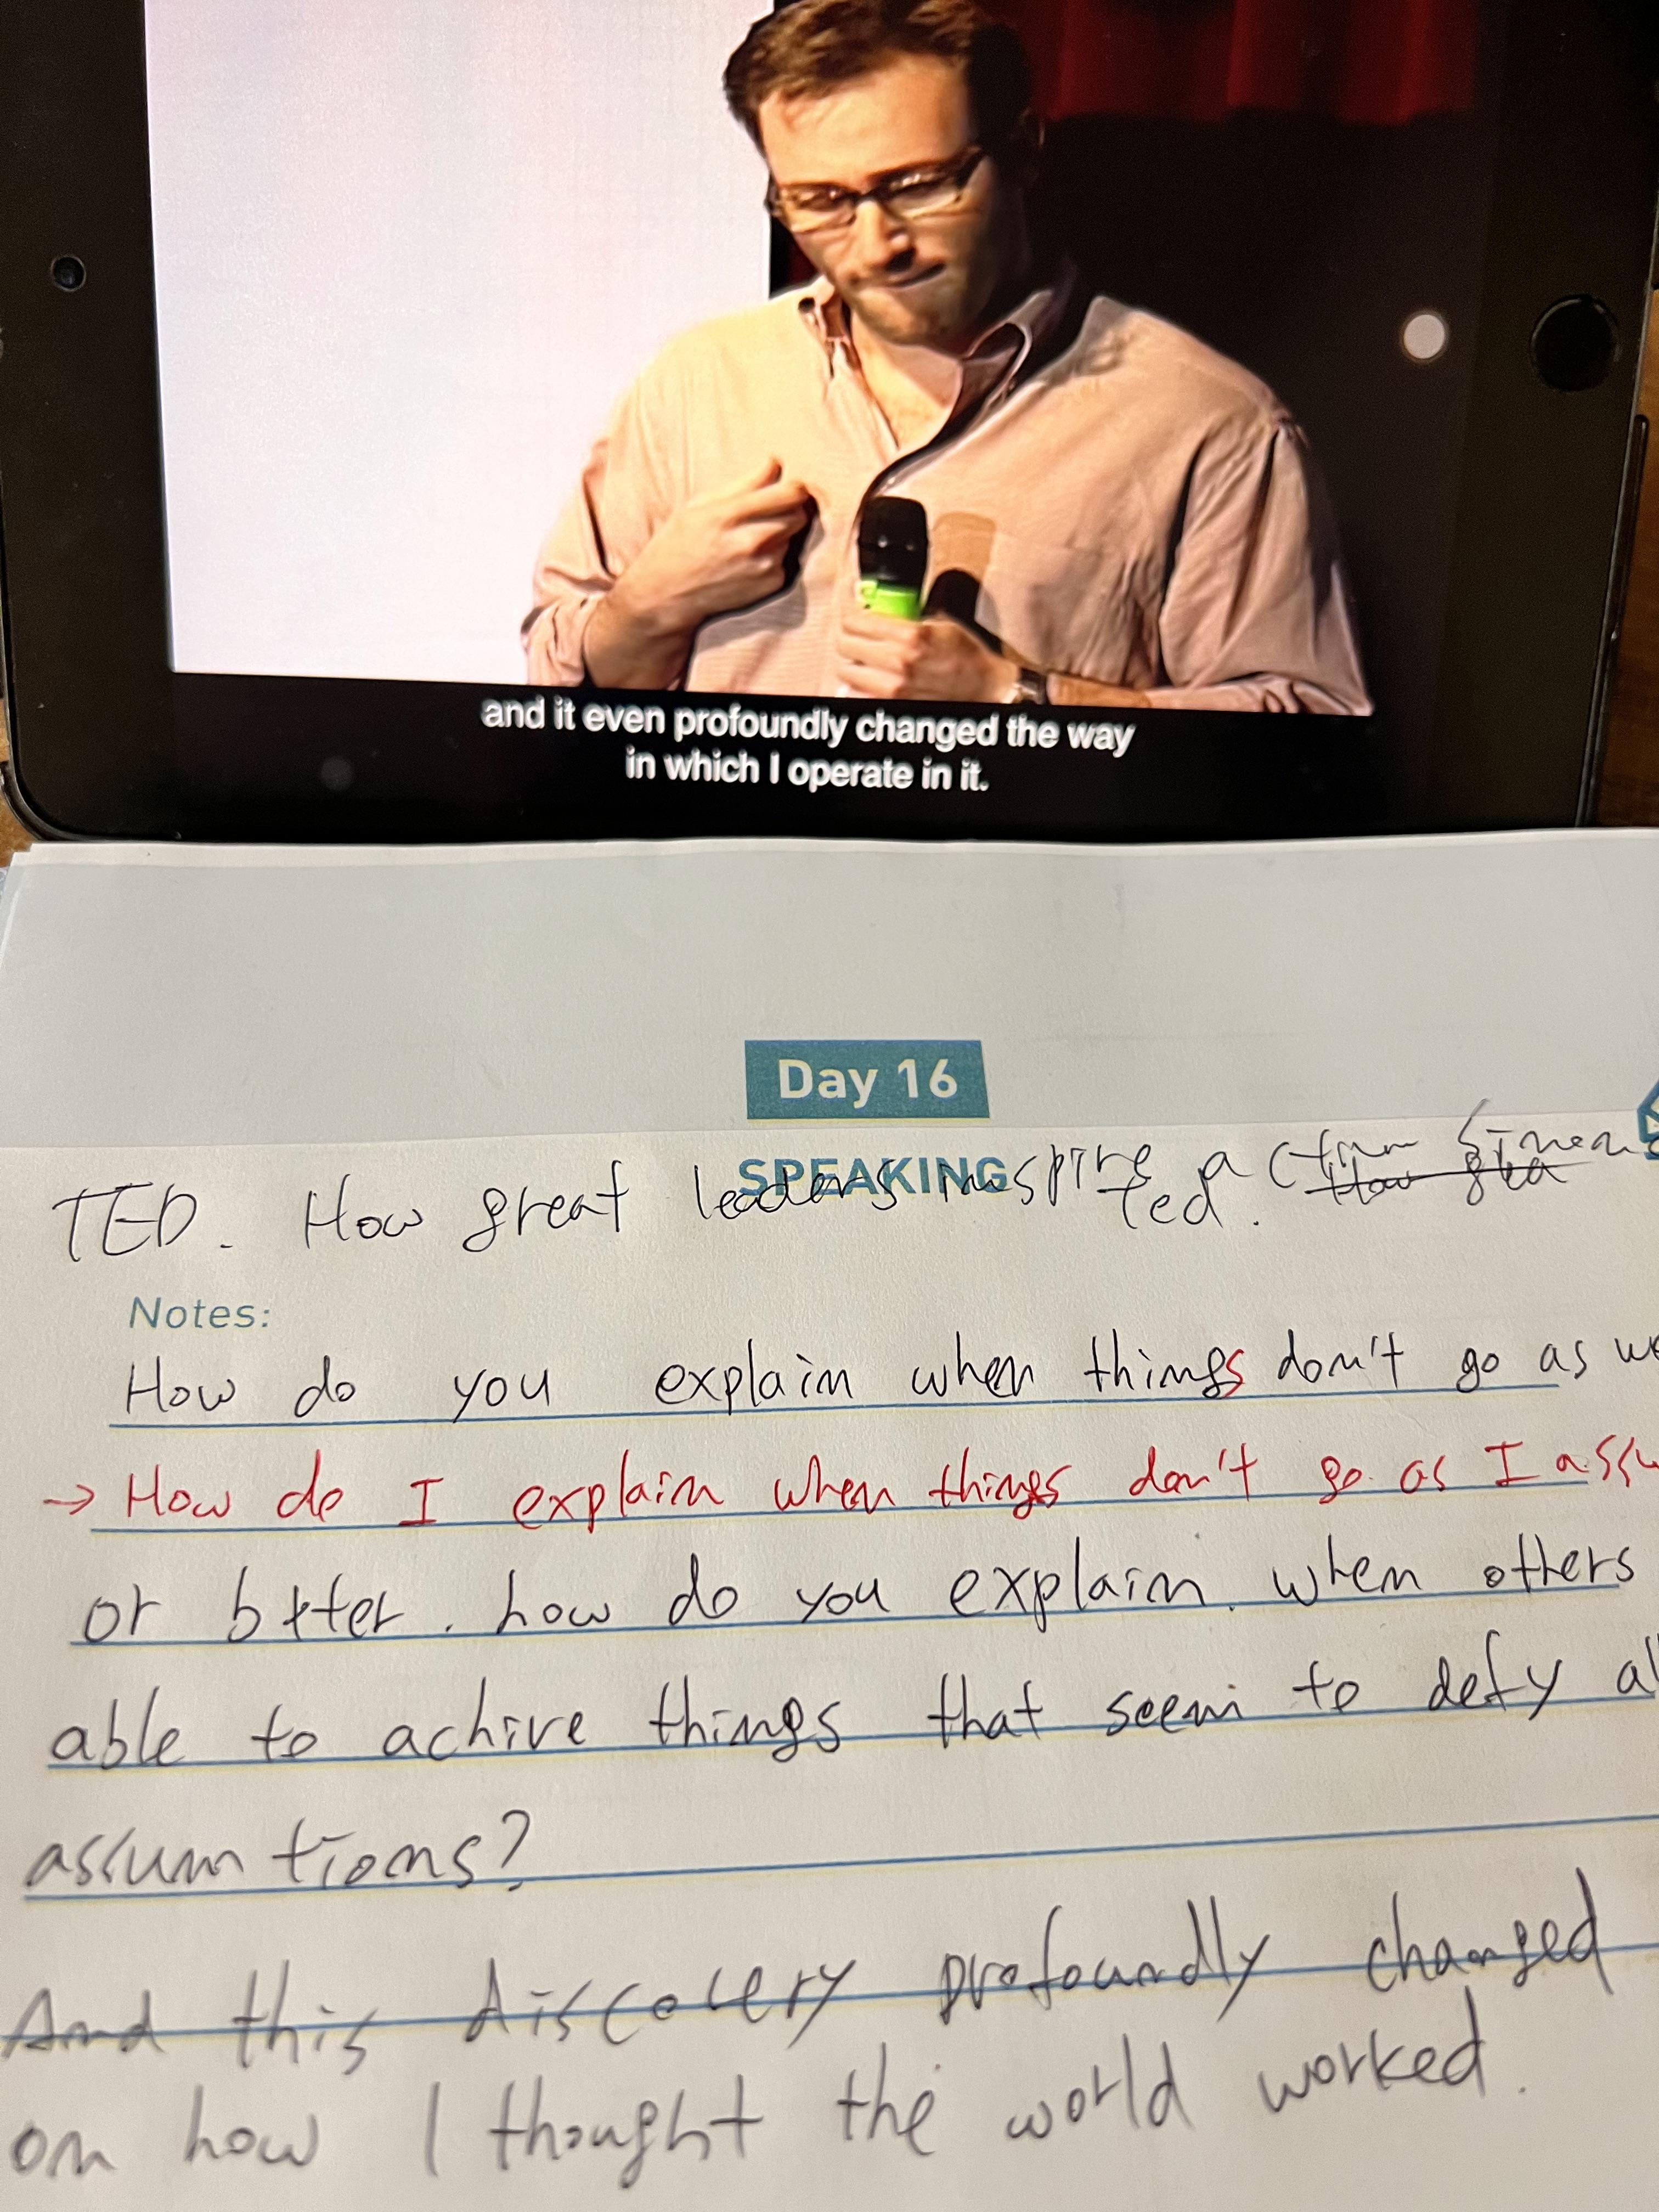 and it even profoundly changed the way
in which I operate in it.
Day 16
SPEAKING
TED. How great leaders inspire action
ted.
Notes:
How do you explain when things don't go as
→ How do I explain when things don't go as I
or btter. how do you explain. when others
able to achive things that seem to defy
assumtions?
And this discovery profoundly changed
on how I thought the world worked.